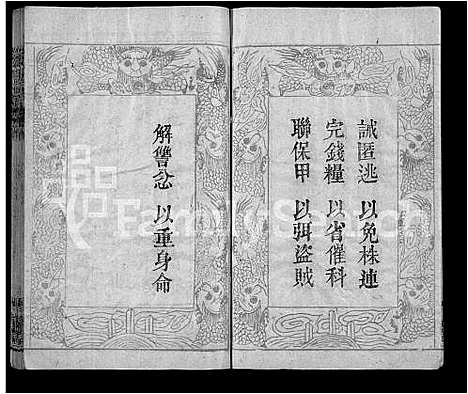 誡匿逃 以免株連
完錢糧 以省催科
聯保甲 以弭盜賊
解讐忿 以重身命
FamilySearch